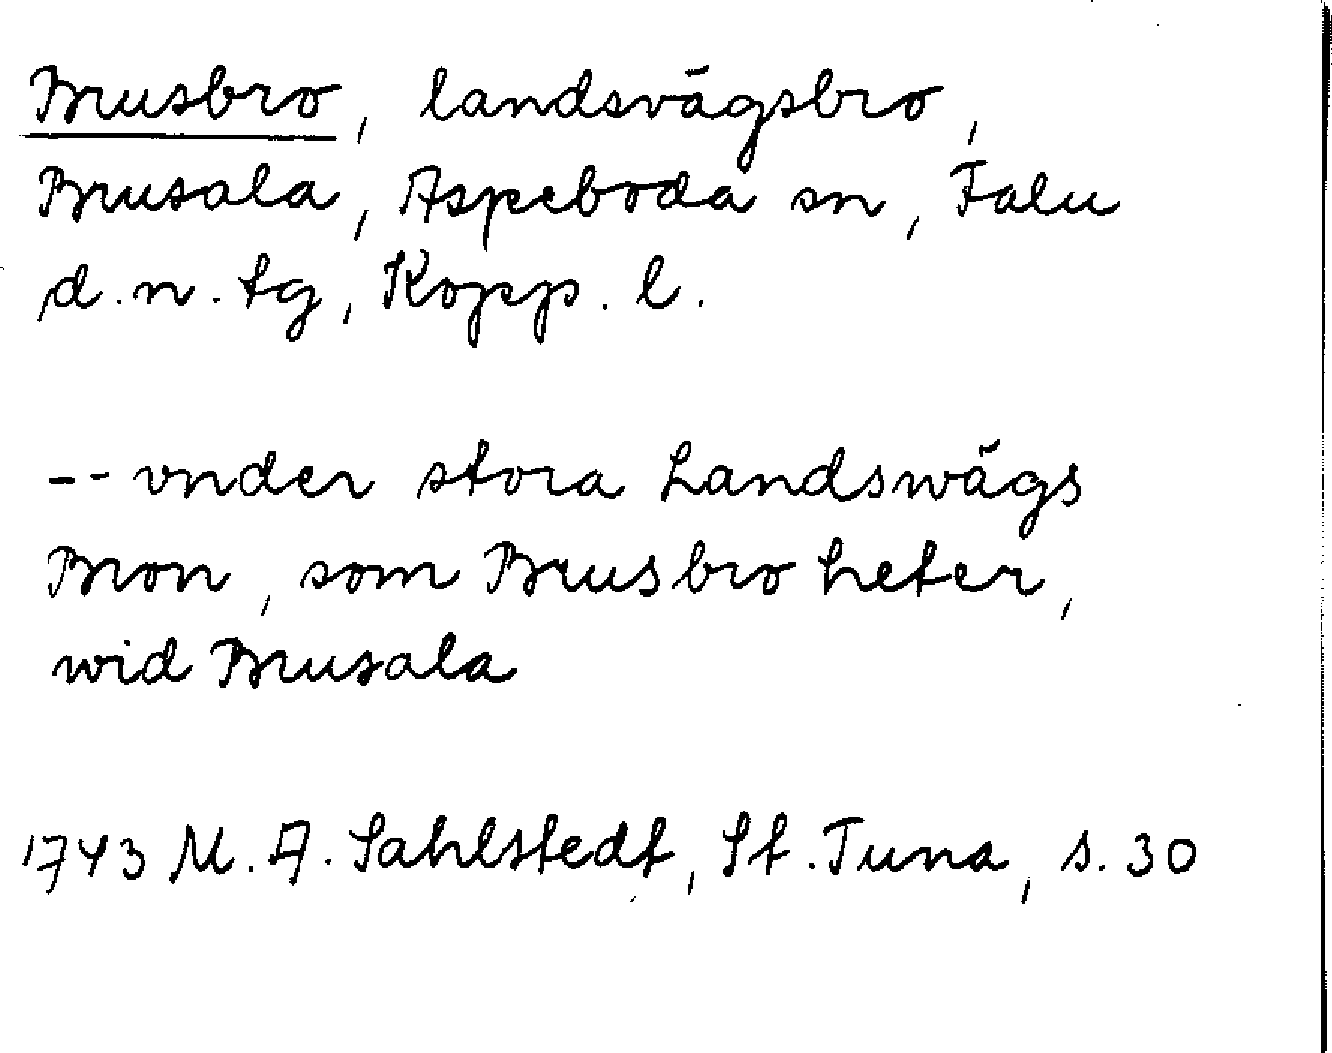 Brusbro, landsvägsbro,
Brusala, Aspeboda sn, Falu
d.n. tg, Kopp. l.
-- vnder stora Landswägs
Bron, som Brusbro heter,
wid Brusala
1743 M.A. Sahlstedt, St. Tuna, s. 30